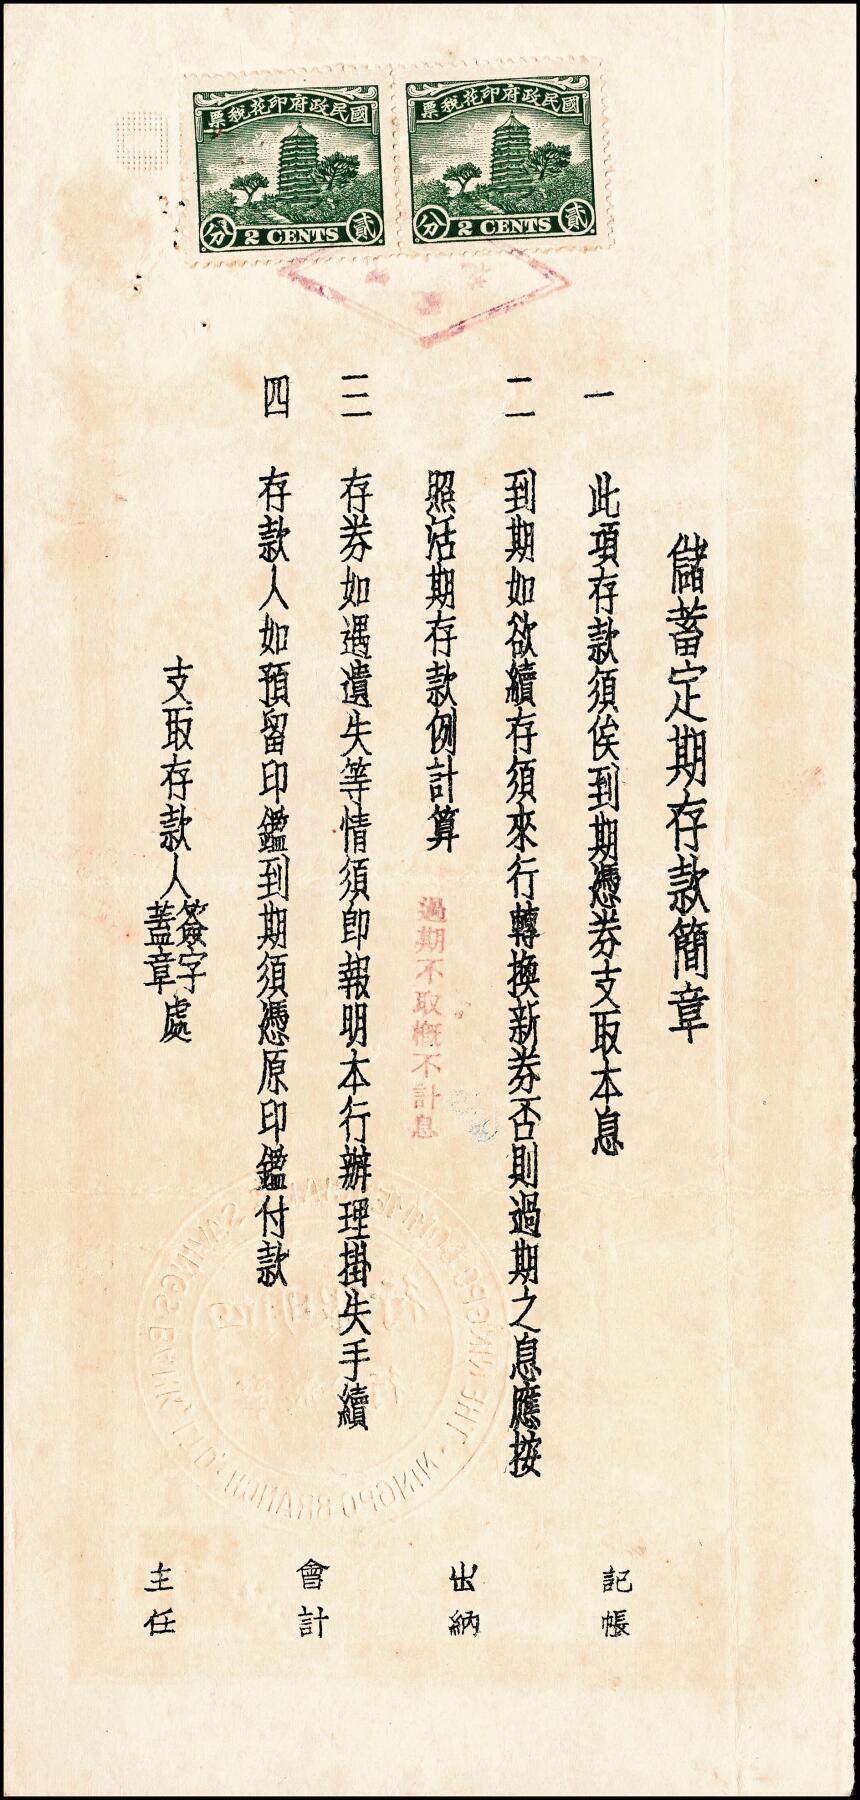 國民政府印花稅票
貳分
2 CENTS
國民政府印花稅票
貳分
2 CENTS
儲蓄定期存款簡章
一 此項存款須俟到期憑券支取本息
二 到期如欲續存須來行轉換新券否則過期之息應按
照活期存款例計算
過期不取概不計息
三 存券如遇遺失等情須即報明本行辦理掛失手續
四 存款人如預留印鑑到期須憑原印鑑付款
支取存款人簽字蓋章處
記帳
出納
會計
主任
SAVINGS BANK, LTD. NINGPO BRANCH